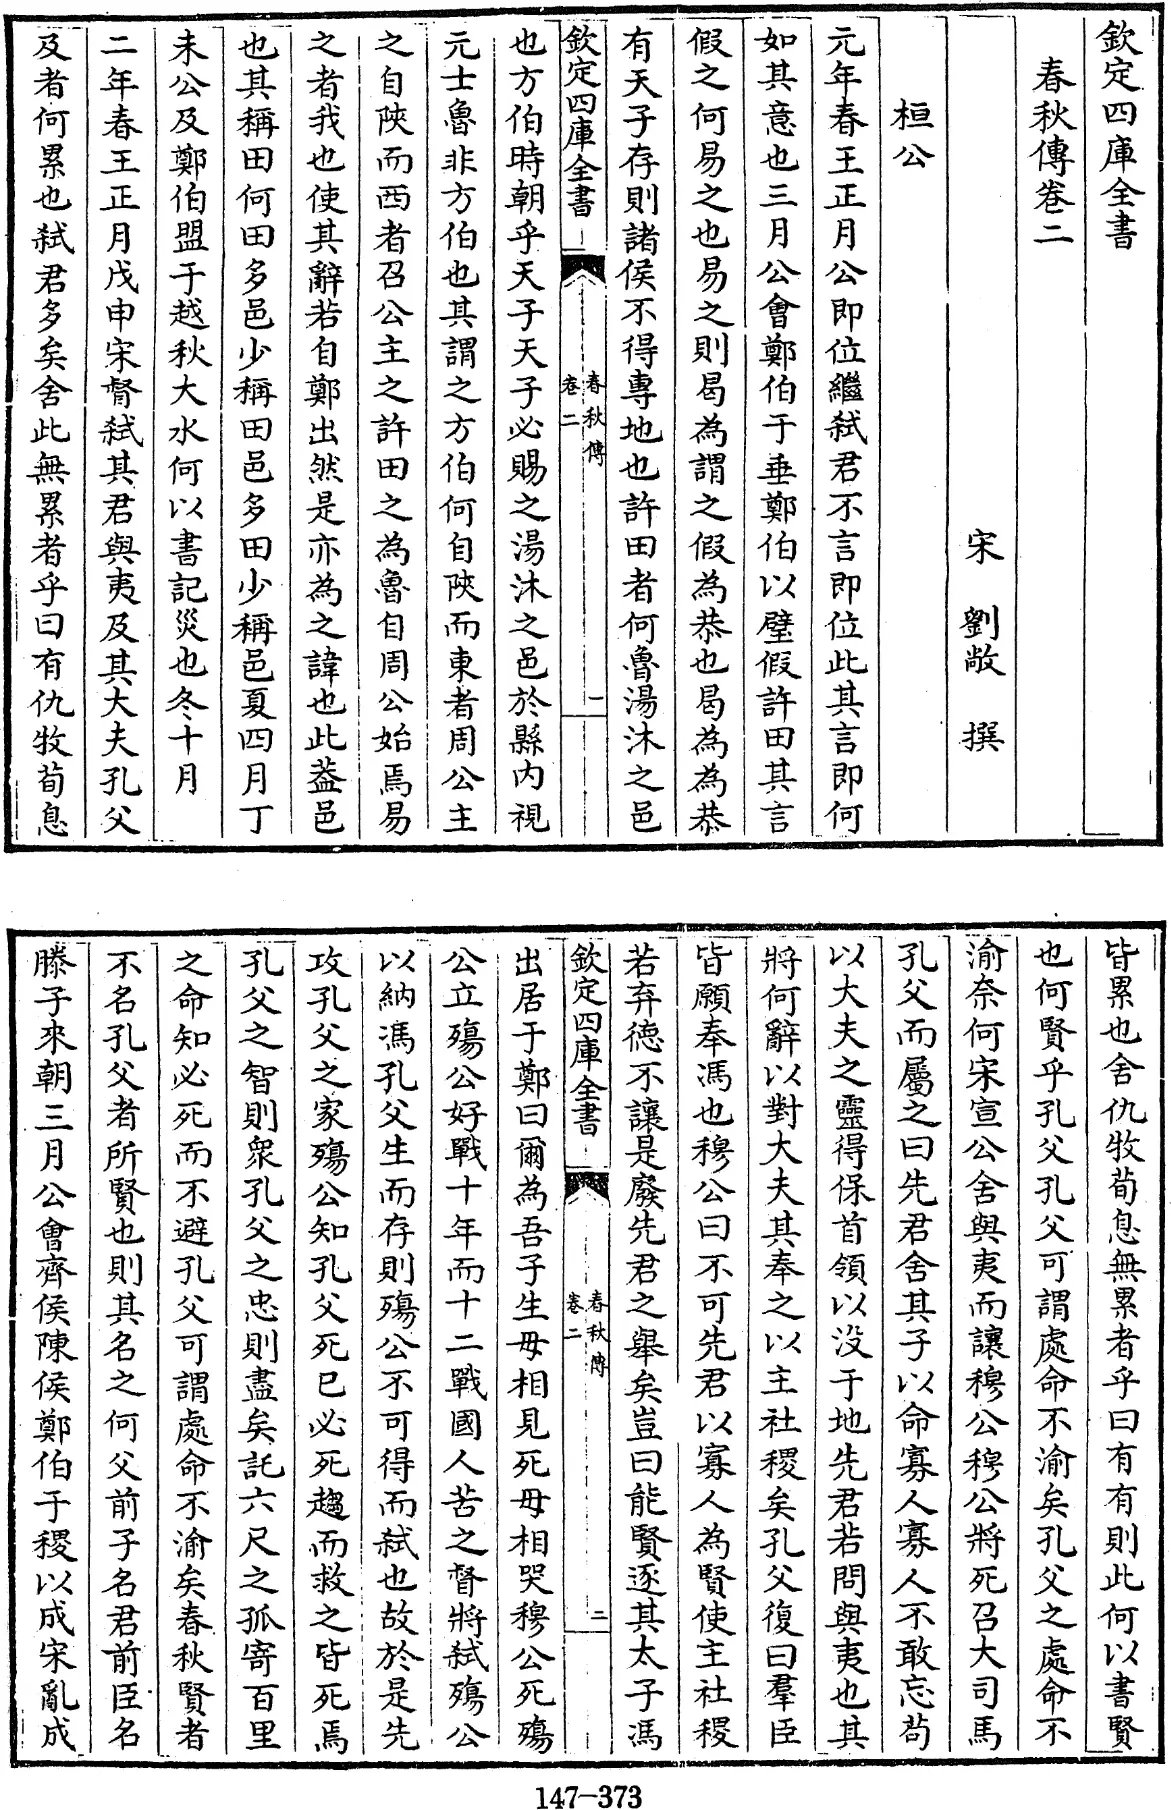 欽定四庫全書
春秋傳卷二
宋 劉敞 撰
桓公
元年春王正月公即位繼弑君不言即位此其言即何
如其意也三月公會鄭伯于垂鄭伯以璧假許田其言
假之何易之也易之則曷為謂之假為恭也曷為為恭
有天子存則諸侯不得專地也許田者何魯湯沐之邑
欽定四庫全書
春秋傳
卷二
一
也方伯時朝乎天子天子必賜之湯沐之邑於縣内視
元士魯非方伯也其謂之方伯何自陜而東者周公主
之自陜而西者召公主之許田之為魯自周公始焉易
之者我也使其辭若自鄭出然是亦為之諱也此葢邑
也其稱田何田多邑少稱田邑多田少稱邑夏四月丁
未公及鄭伯盟于越秋大水何以書記災也冬十月
二年春王正月戊申宋督弑其君與夷及其大夫孔父
及者何累也弑君多矣舍此無累者乎曰有仇牧荀息
皆累也舍仇牧荀息無累者乎曰有有則此何以書賢
也何賢乎孔父孔父可謂處命不渝矣孔父之處命不
渝奈何宋宣公舍與夷而讓穆公穆公將死召大司馬
孔父而屬之曰先君舍其子以命寡人寡人不敢忘茍
以大夫之靈得保首領以没于地先君若問與夷也其
將何辭以對大夫其奉之以主社稷矣孔父復曰羣臣
皆願奉馮也穆公曰不可先君以寡人為賢使主社稷
若弃德不讓是廢先君之舉矣豈曰能賢逐其太子馮
欽定四庫全書
春秋傳
卷二
二
出居于鄭曰爾為吾子生毋相見死毋相哭穆公死殤
公立殤公好戰十年而十二戰國人苦之督將弑殤公
以納馮孔父生而存則殤公不可得而弑也故於是先
攻孔父之家殤公知孔父死已必死趨而救之皆死焉
孔父之智則衆孔父之忠則盡矣託六尺之孤寄百里
之命知必死而不避孔父可謂處命不渝矣春秋賢者
不名孔父者所賢也則其名之何父前子名君前臣名
滕子來朝三月公會齊侯陳侯鄭伯于稷以成宋亂成
147-373